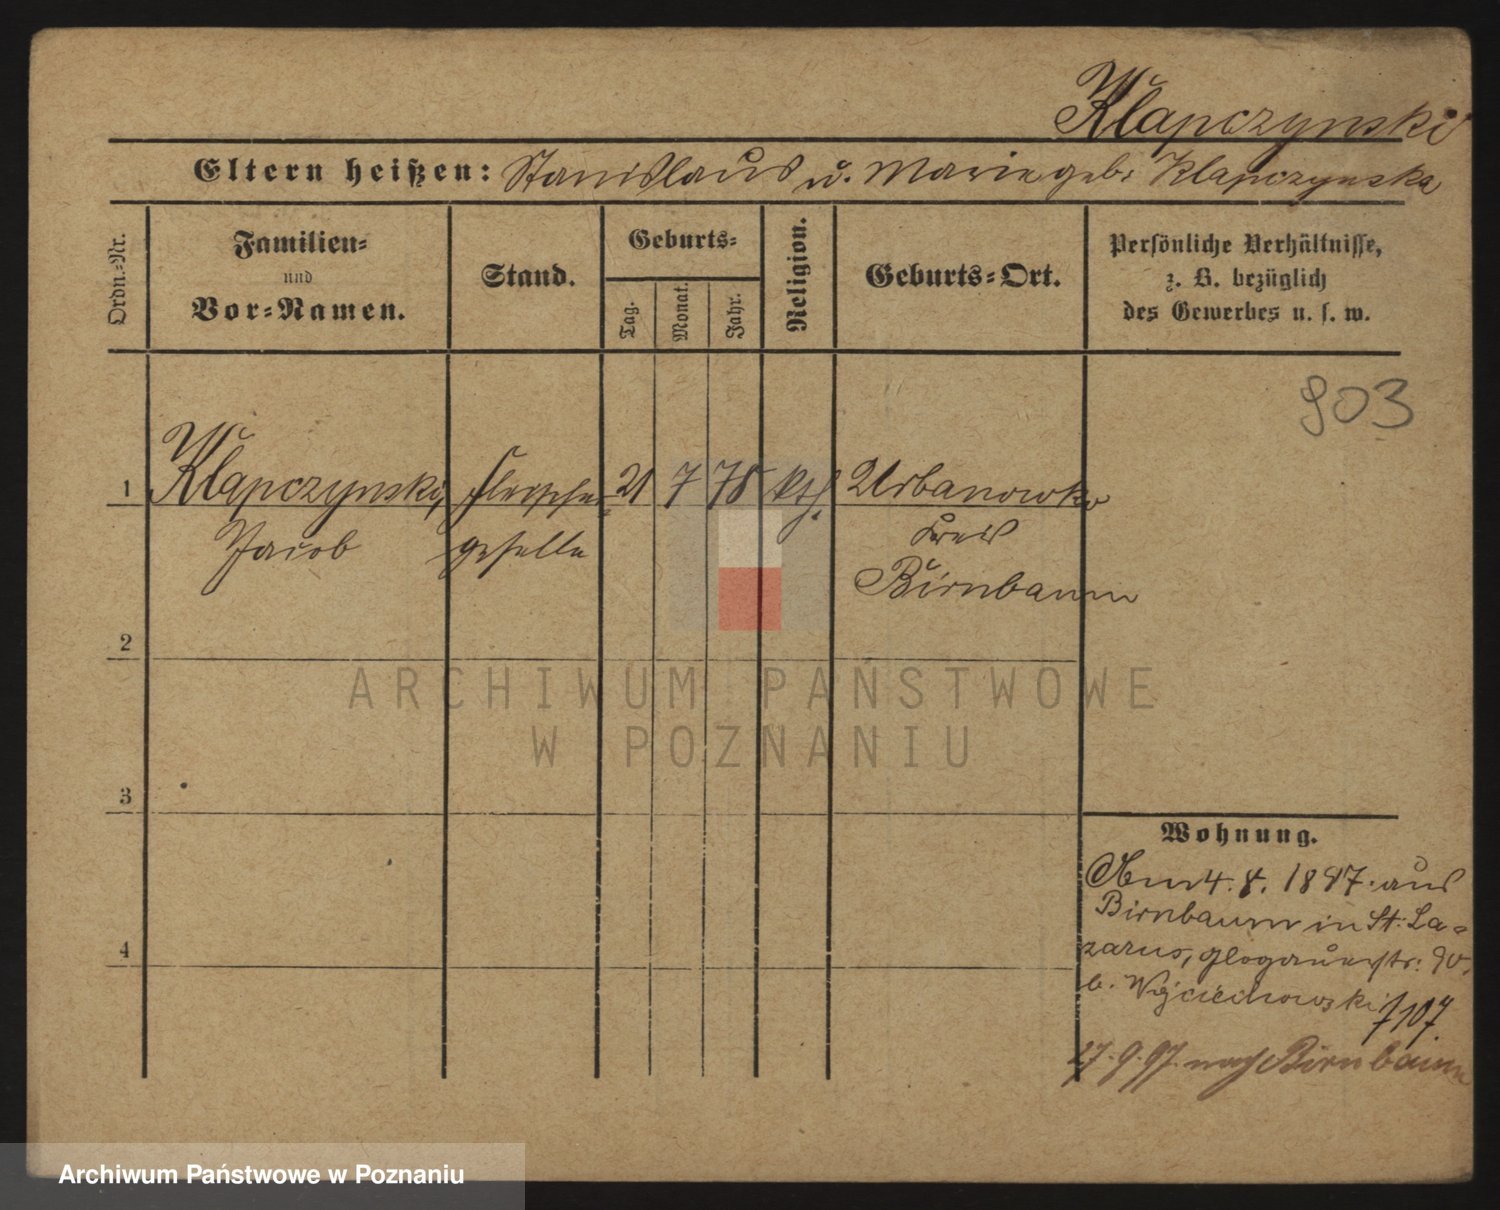 Klapczynski
Eltern heißen: Stanislaus u. Marie geb. Klapczynska
Ordn.-Nr.
Familien-
und
Vor-Namen.
Stand.
Geburts-
Tag.
Monat.
Jahr.
Religion.
Geburts-Ort.
Persönliche Verhältnisse,
z. B. bezüglich
des Gewerbes u. s. w.
903
1 Klapczynski, Fleischer- 21 7 78 kth. Urbanowko
Jacob geselle Kreis
Birnbaum
2
3
4
Wohnung.
Am 4. 8. 1897. aus
Birnbaum in St. La-
zarus, Glogauerstr. 90,
b. Wojciechowski
7107
27. 9. 97. nach Birnbaum
ARCHIWUM PAŃSTWOWE
W POZNANIU
Archiwum Państwowe w Poznaniu